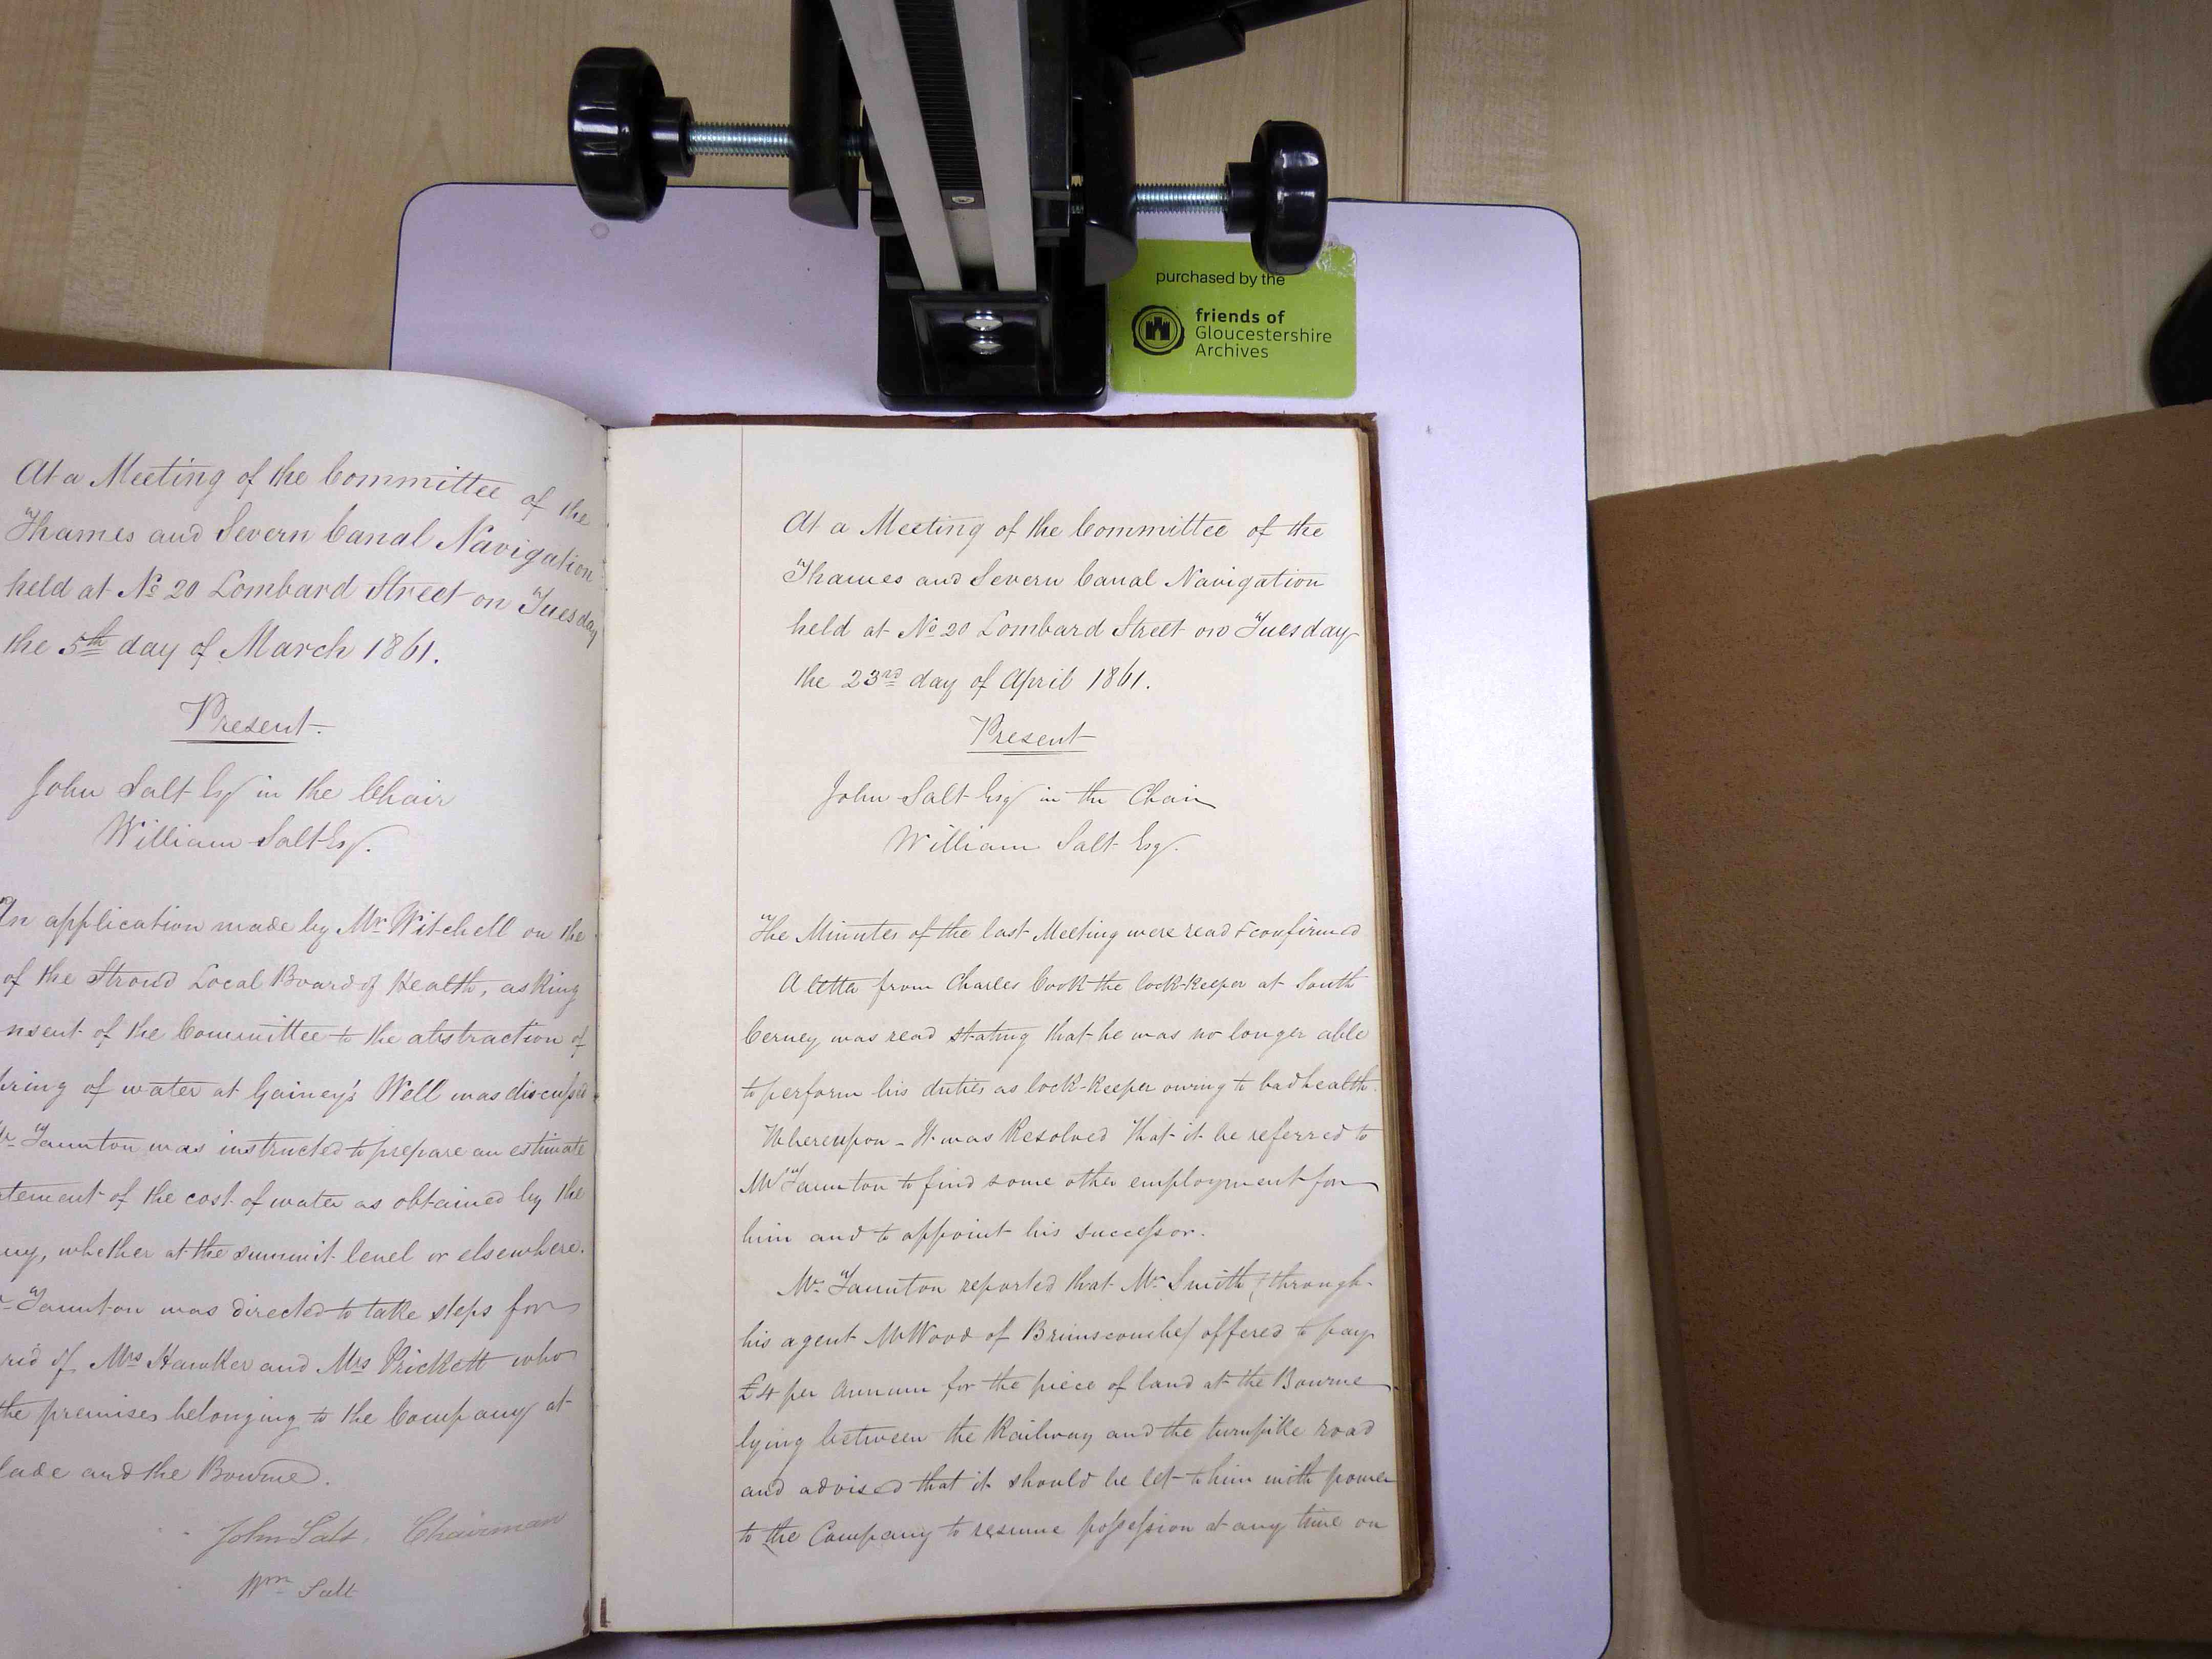 purchased by the
friends of
Gloucestershire
Archives
At a Meeting of the Committee of the
Thames and Severn Canal Navigation
held at No 20 Lombard Street on Tuesday
the 5th day of March 1861.
Present.
John Salt Esq in the Chair
William Salt Esq.
An application made by Mr Witchell on the
of the Stroud Local Board of Health, asking
nsent of the Committee to the abstraction of
pring of water at Gainey's Well was discussed
Taunton was instructed to prepare an estimate
tement of the cost of water as obtained by the
ny, whether at the summit level or elsewhere.
Taunton was directed to take steps for
rid of Mrs Hawker and Mrs Prickett who
the premises belonging to the Company at
lade and the Bourne.
John Salt, Chairman
Wm Salt
At a Meeting of the Committee of the
Thames and Severn Canal Navigation
held at No 20 Lombard Street on Tuesday
the 23rd day of April 1861.
Present
John Salt Esq in the Chair
William Salt Esq.
The Minutes of the last Meeting were read & confirmed
A letter from Charles Cook the lock-keeper at South
Cerney was read stating that he was no longer able
to perform his duties as lock-keeper owing to bad health.
Whereupon - It was Resolved That it be referred to
Mr Taunton to find some other employment for
him and to appoint his successor.
Mr Taunton reported that Mr Smith (through
his agent Mr Wood of Brimscombe) offered to pay
£4 per Annum for the piece of land at the Bourne
lying between the Railway and the turnpike road
and advised that it should be let to him with power
to the Company to resume possession at any time on